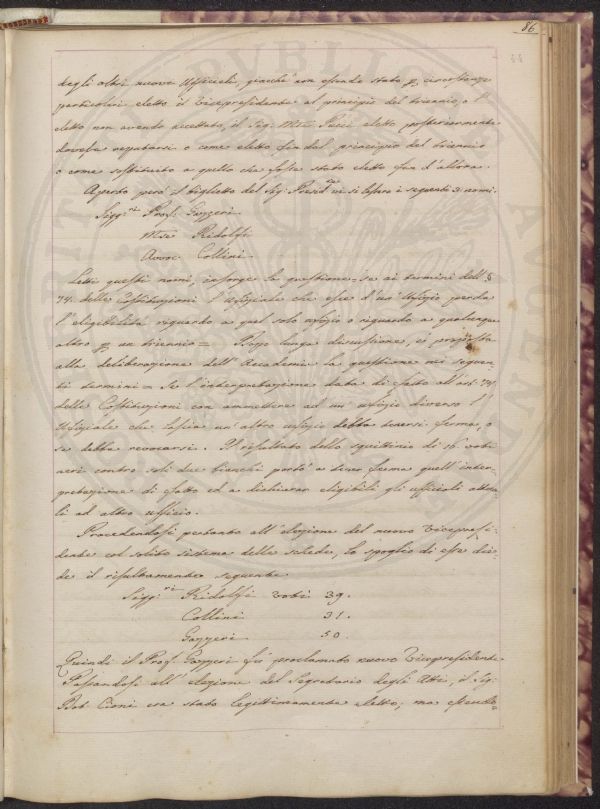 86
44
degli altri nuovi Uffiziali, giacchè non essendo stato p. circostanze
particolari eletto il Vicepresidente al principio del triennio, o l'
eletto non avendo accettato, il Sig. Mse Pucci eletto posteriormente
doveva reputarsi o come eletto fin dal principio del triennio
o come sostituito a quello che fosse stato eletto fin d'allora.
Aperto però il biglietto del Sig: Presid.te vi si lessero i seguenti 3. nomi.
Sigg.ri Prof. Gazzeri
Mse Ridolfi
Avvoc Collini
Letti questi nomi, insorge la questione = Se ai termini dell' §
74. delle Costituzioni l'Uffiziale che esce d'un Ufizio perda
l'eligibilità riguardo a quel solo ufizio o riguardo a qualunque
altro p. un triennio = Dopo lunga discussione, è proposta
alla deliberazione dell'Accademia la questione nei seguen
ti termini = Se l'interpretazione data di fatto all'art. 74
delle Costituzioni con ammettere ad un'ufizio diverso l'
Ufiziale che lascia un'altro ufizio debba tenersi ferma, o
se debba revocarsi. Il risultato dello squittinio di 16. voti
neri contro soli due bianchi portò a tener ferma quell'inter=
pretazione di fatto ed a dichiarar eligibili gli ufficiali attua
li ad altro ufficio.
Procedendosi pertanto all'elezione del nuovo Vicepresi=
dente col solito sistema delle schede, lo spoglio di esse die=
de il risultamento seguente
Sigg.ri Ridolfi voti 39.
Collini 31.
Gazzeri 50.
Quindi il Prof. Gazzeri fu proclamato nuovo Vicepresidente
Passandosi all'elezione del Segretario degli Atti, il Sig.
Dot. Cioni era stato legittimamente eletto; ma essendo=